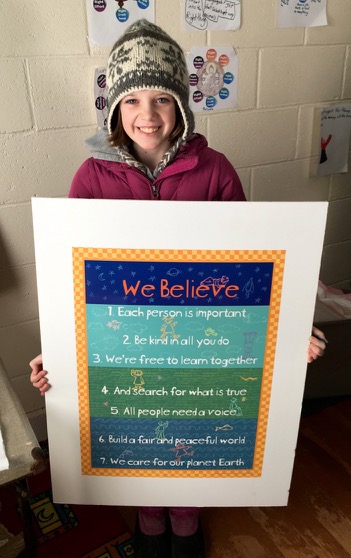 We Believe
1. Each person is important
2. Be kind in all you do
3. We're free to learn together
4. And search for what is true
5. All people need a voice
6. Build a fair and peaceful world
7. We care for our planet Earth